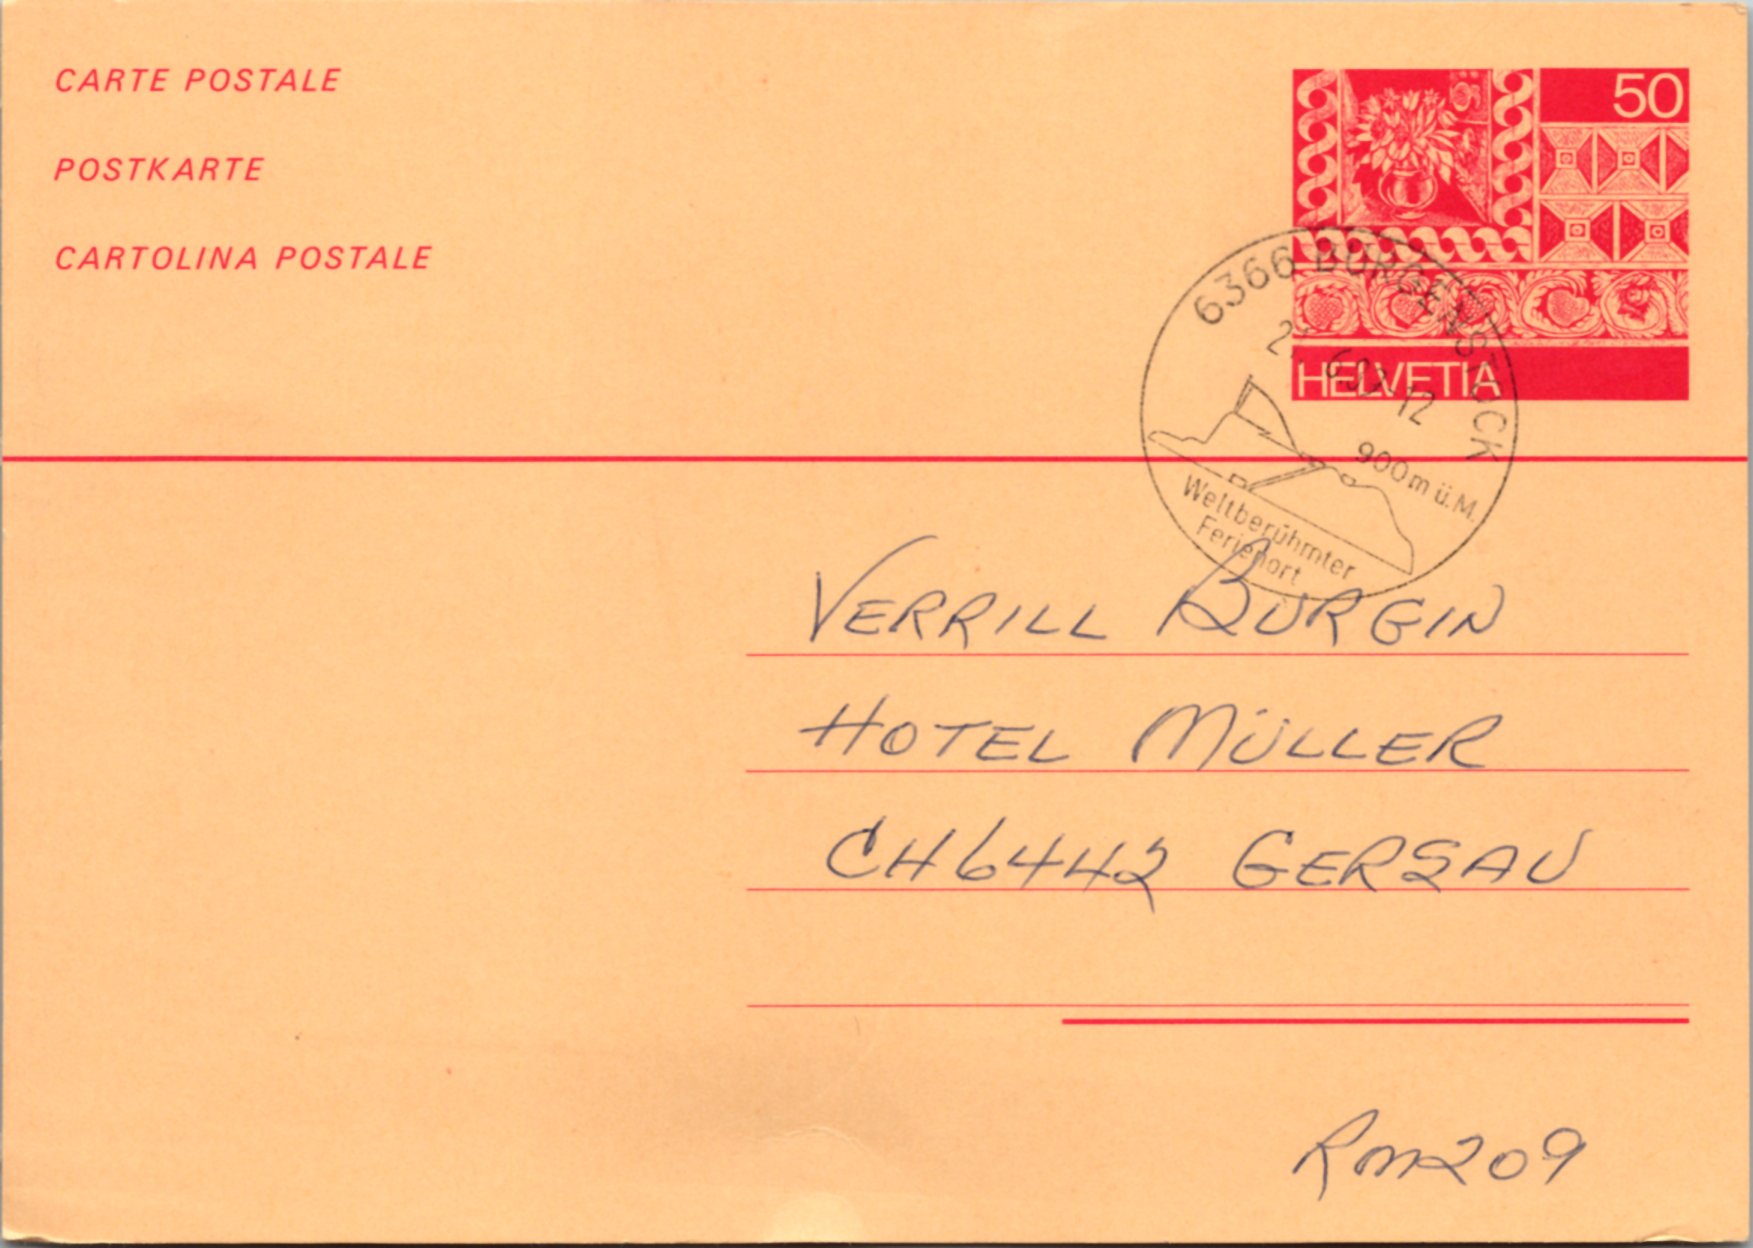 CARTE POSTALE
POSTKARTE
CARTOLINA POSTALE
50
HELVETIA
6366 BÜRGENSTOCK
12
900m ü.M.
Weltberühmter
Ferienort
VERRILL BURGIN
HOTEL MÜLLER
CH6442 GERSAU
Rm209